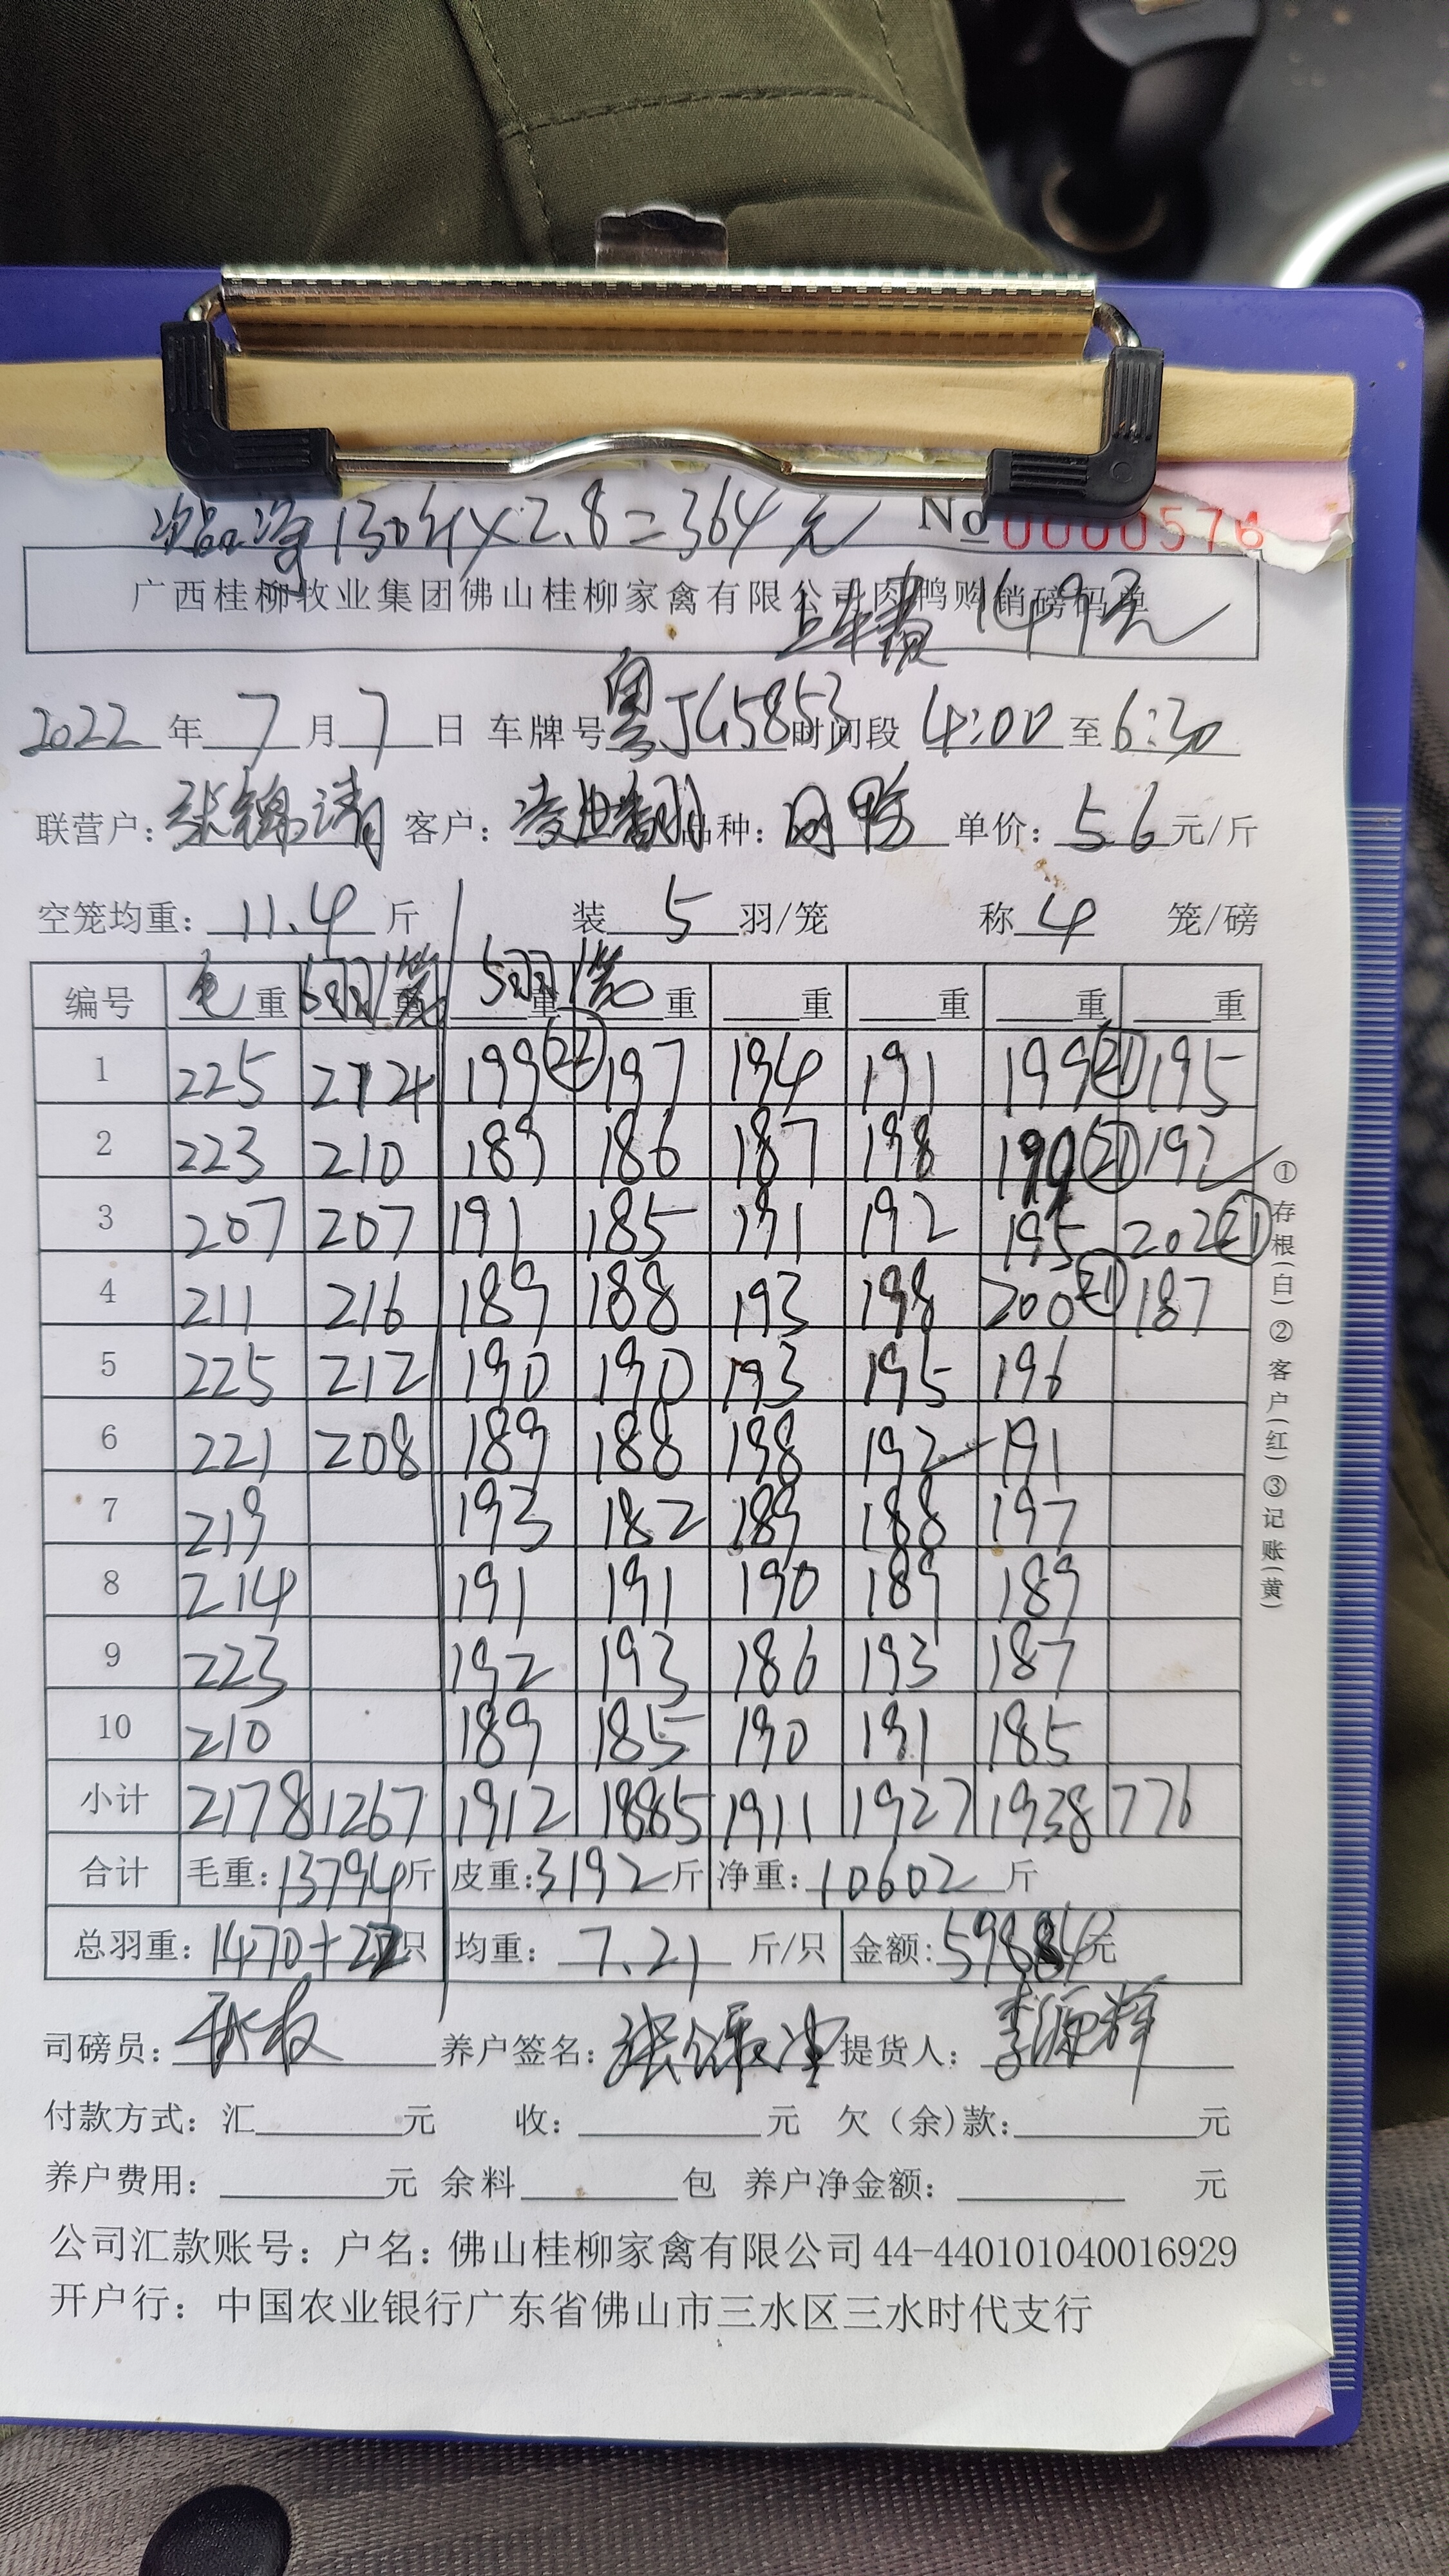 次品净130斤×2.8=364元 No 0000576
广西桂柳牧业集团佛山桂柳家禽有限公司肉鸭购销磅码单
上车费 149元
2022年7月7日 车牌号粤JG5853时间段4:00至6:30
联营户:张锦清 客户: 品种:肉鸭 单价:5.6元/斤
空笼均重:11.4斤 装5羽/笼 称4笼/磅
编号 毛重 6羽/笼重 5羽/笼重 重 重 重 重 重
1 225 212 199㉒ 197 194 191 199㉑ 195
2 223 210 189 186 187 198 190㉑ 192
3 207 207 191 185 191 192 195 202㉑
4 211 216 189 188 193 198 200㉑ 187
5 225 212 190 190 193 195 196
6 221 208 189 188 198 192 191
7 219 193 182 189 188 197
8 214 191 191 190 189 189
9 223 192 193 186 193 187
10 210 189 185 190 191 185
小计 2178 1267 1912 1885 1911 1927 1938 776
合计 毛重:13794斤 皮重:3192斤 净重:10602斤
总羽重:1470+22只 均重:7.21斤/只 金额:59884元
司磅员: 养户签名: 提货人:李源辉
付款方式:汇 元 收: 元 欠(余)款: 元
养户费用: 元 余料 包 养户净金额: 元
公司汇款账号:户名:佛山桂柳家禽有限公司44-440101040016929
开户行:中国农业银行广东省佛山市三水区三水时代支行
①存根(白)②客户(红)③记账(黄)